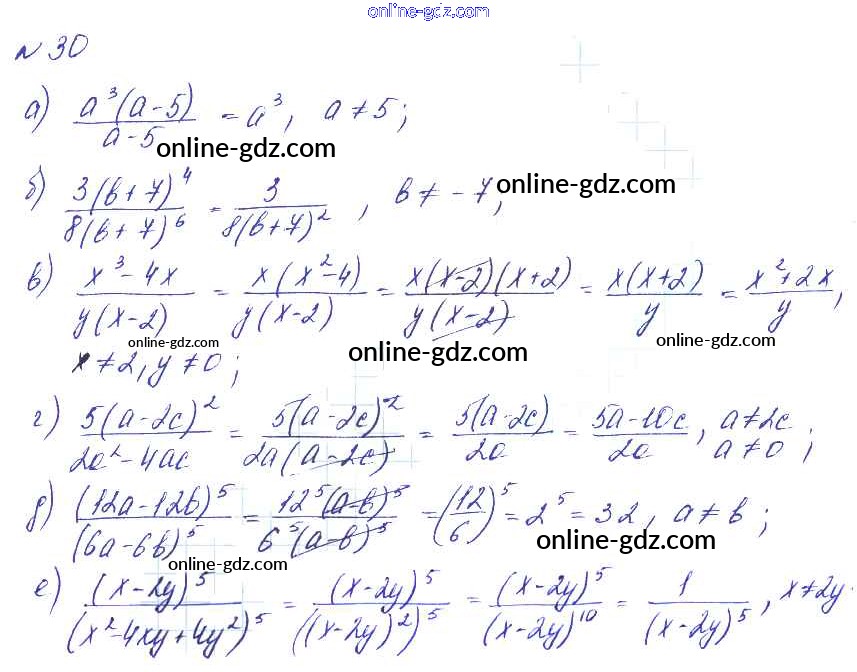 online-gdz.com
№ 30
а) a³(a-5)/(a-5) = a³, a ≠ 5;
online-gdz.com
б) 3(b+7)⁴/8(b+7)⁶ = 3/8(b+7)², b ≠ -7,
online-gdz.com
в) x³-4x/y(x-2) = x(x²-4)/y(x-2) = x(x-2)(x+2)/y(x-2) = x(x+2)/y = x²+2x/y,
x ≠ 2, y ≠ 0;
online-gdz.com
online-gdz.com
online-gdz.com
г) 5(a-2c)²/2a²-4ac = 5(a-2c)²/2a(a-2c) = 5(a-2c)/2a = 5a-10c/2a, a ≠ 2c
a ≠ 0;
д) (12a-12b)⁵/(6a-6b)⁵ = 12⁵(a-b)⁵/6⁵(a-b)⁵ = (12/6)⁵ = 2⁵ = 32, a ≠ b;
online-gdz.com
online-gdz.com
е) (x-2y)⁵/(x²-4xy+4y²)⁵ = (x-2y)⁵/((x-2y)²)⁵ = (x-2y)⁵/(x-2y)¹⁰ = 1/(x-2y)⁵, x ≠ 2y